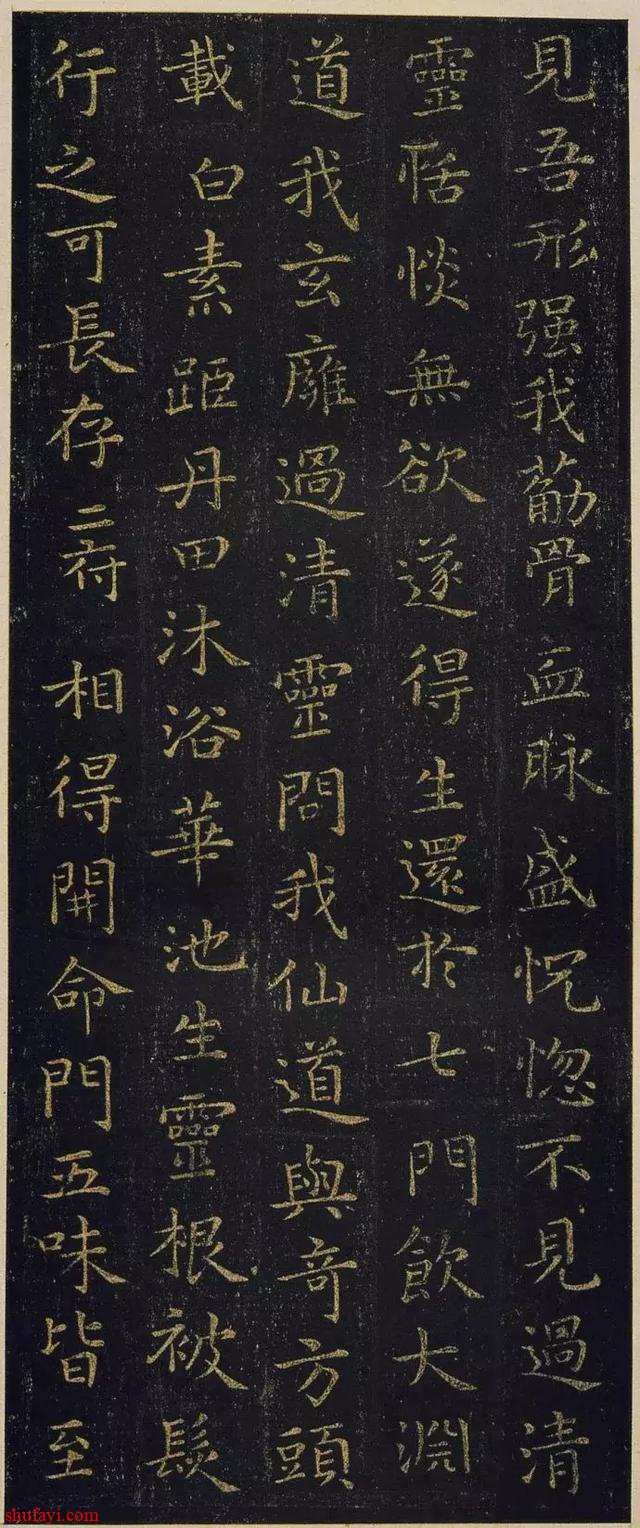 見吾形强我筋骨血脉盛怳惚不見過清
靈恬惔無欲遂得生還於七門飲大淵
道我玄廱過清靈問我仙道與奇方頭
載白素距丹田沐浴華池生靈根被髮
行之可長存二府相得開命門五味皆至
shufayi.com